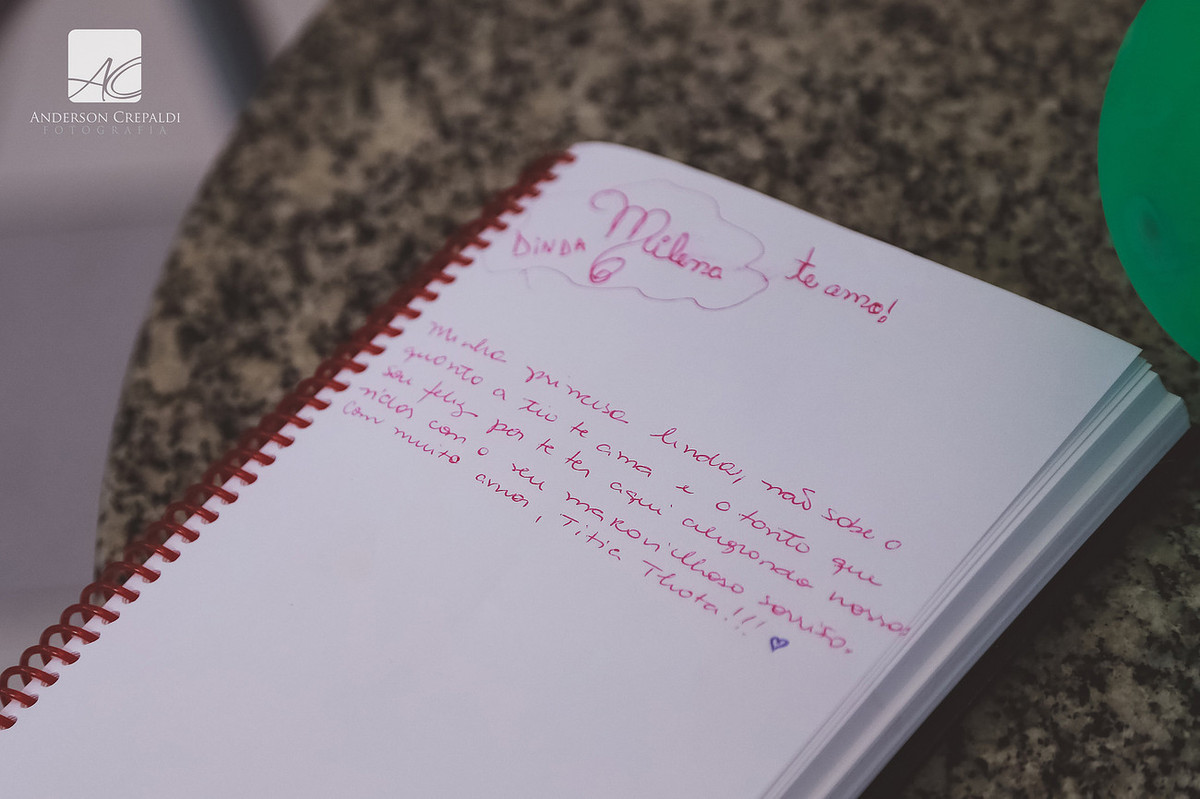 AC
ANDERSON CREPALDI
FOTOGRAFIA
Milena
DINDA
te amo!
Minha princesa linda, não sabe o
quanto a tia te ama e o tanto que
sou feliz por te ter aqui alegrando nossas
vidas com o seu maravilhoso sorriso.
Com muito amor, Titia Thota!!!